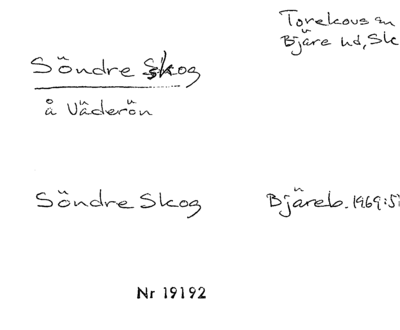 Torekovs sn
Bjäre hd, Sk
Söndre Skog
å Väderön
Söndre Skog
Bjäreb. 1969:5
Nr 19192